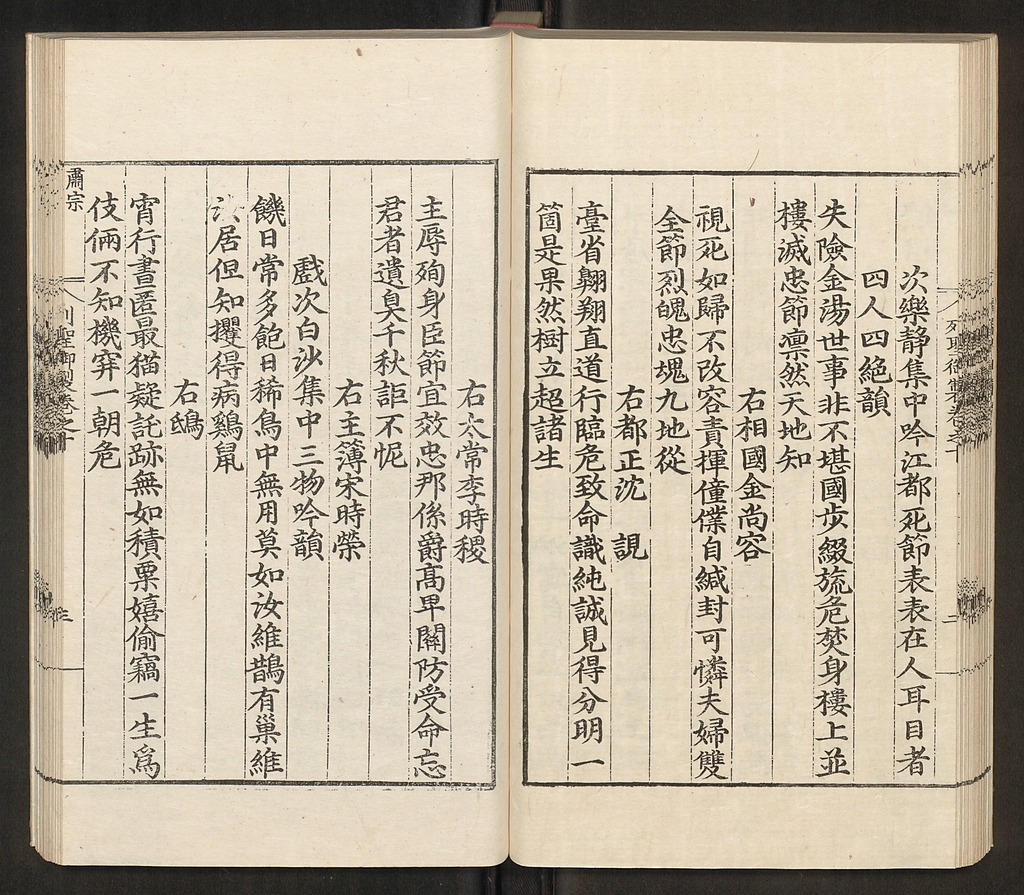 次樂静集中吟江都死節表表在人耳目者
四人四絶韻
失險金湯世事非不堪國步綴旒危焚身樓上並
樓滅忠節凛然天地知
右相國金尚容
視死如歸不改容責揮僮僕自緘封可憐夫婦雙
全節烈魄忠魂九地從
右都正沈 誢
臺省翱翔直道行臨危致命識純誠見得分明一
箇是果然樹立超諸生
右太常李時稷
主辱殉身臣節宜效忠那係爵髙卑關防受命忘
君者遺臭千秋詎不怩
右主簿宋時榮
戲次白沙集中三物吟韻
饑日常多飽日稀鳥中無用莫如汝維鵲有巢維
汝居但知攫得病鷄鼠
右鴟
宵行晝匿最猫疑託跡無如積栗嬉偷竊一生爲
伎倆不知機穽一朝危
肅宗
列聖御製卷之十
三